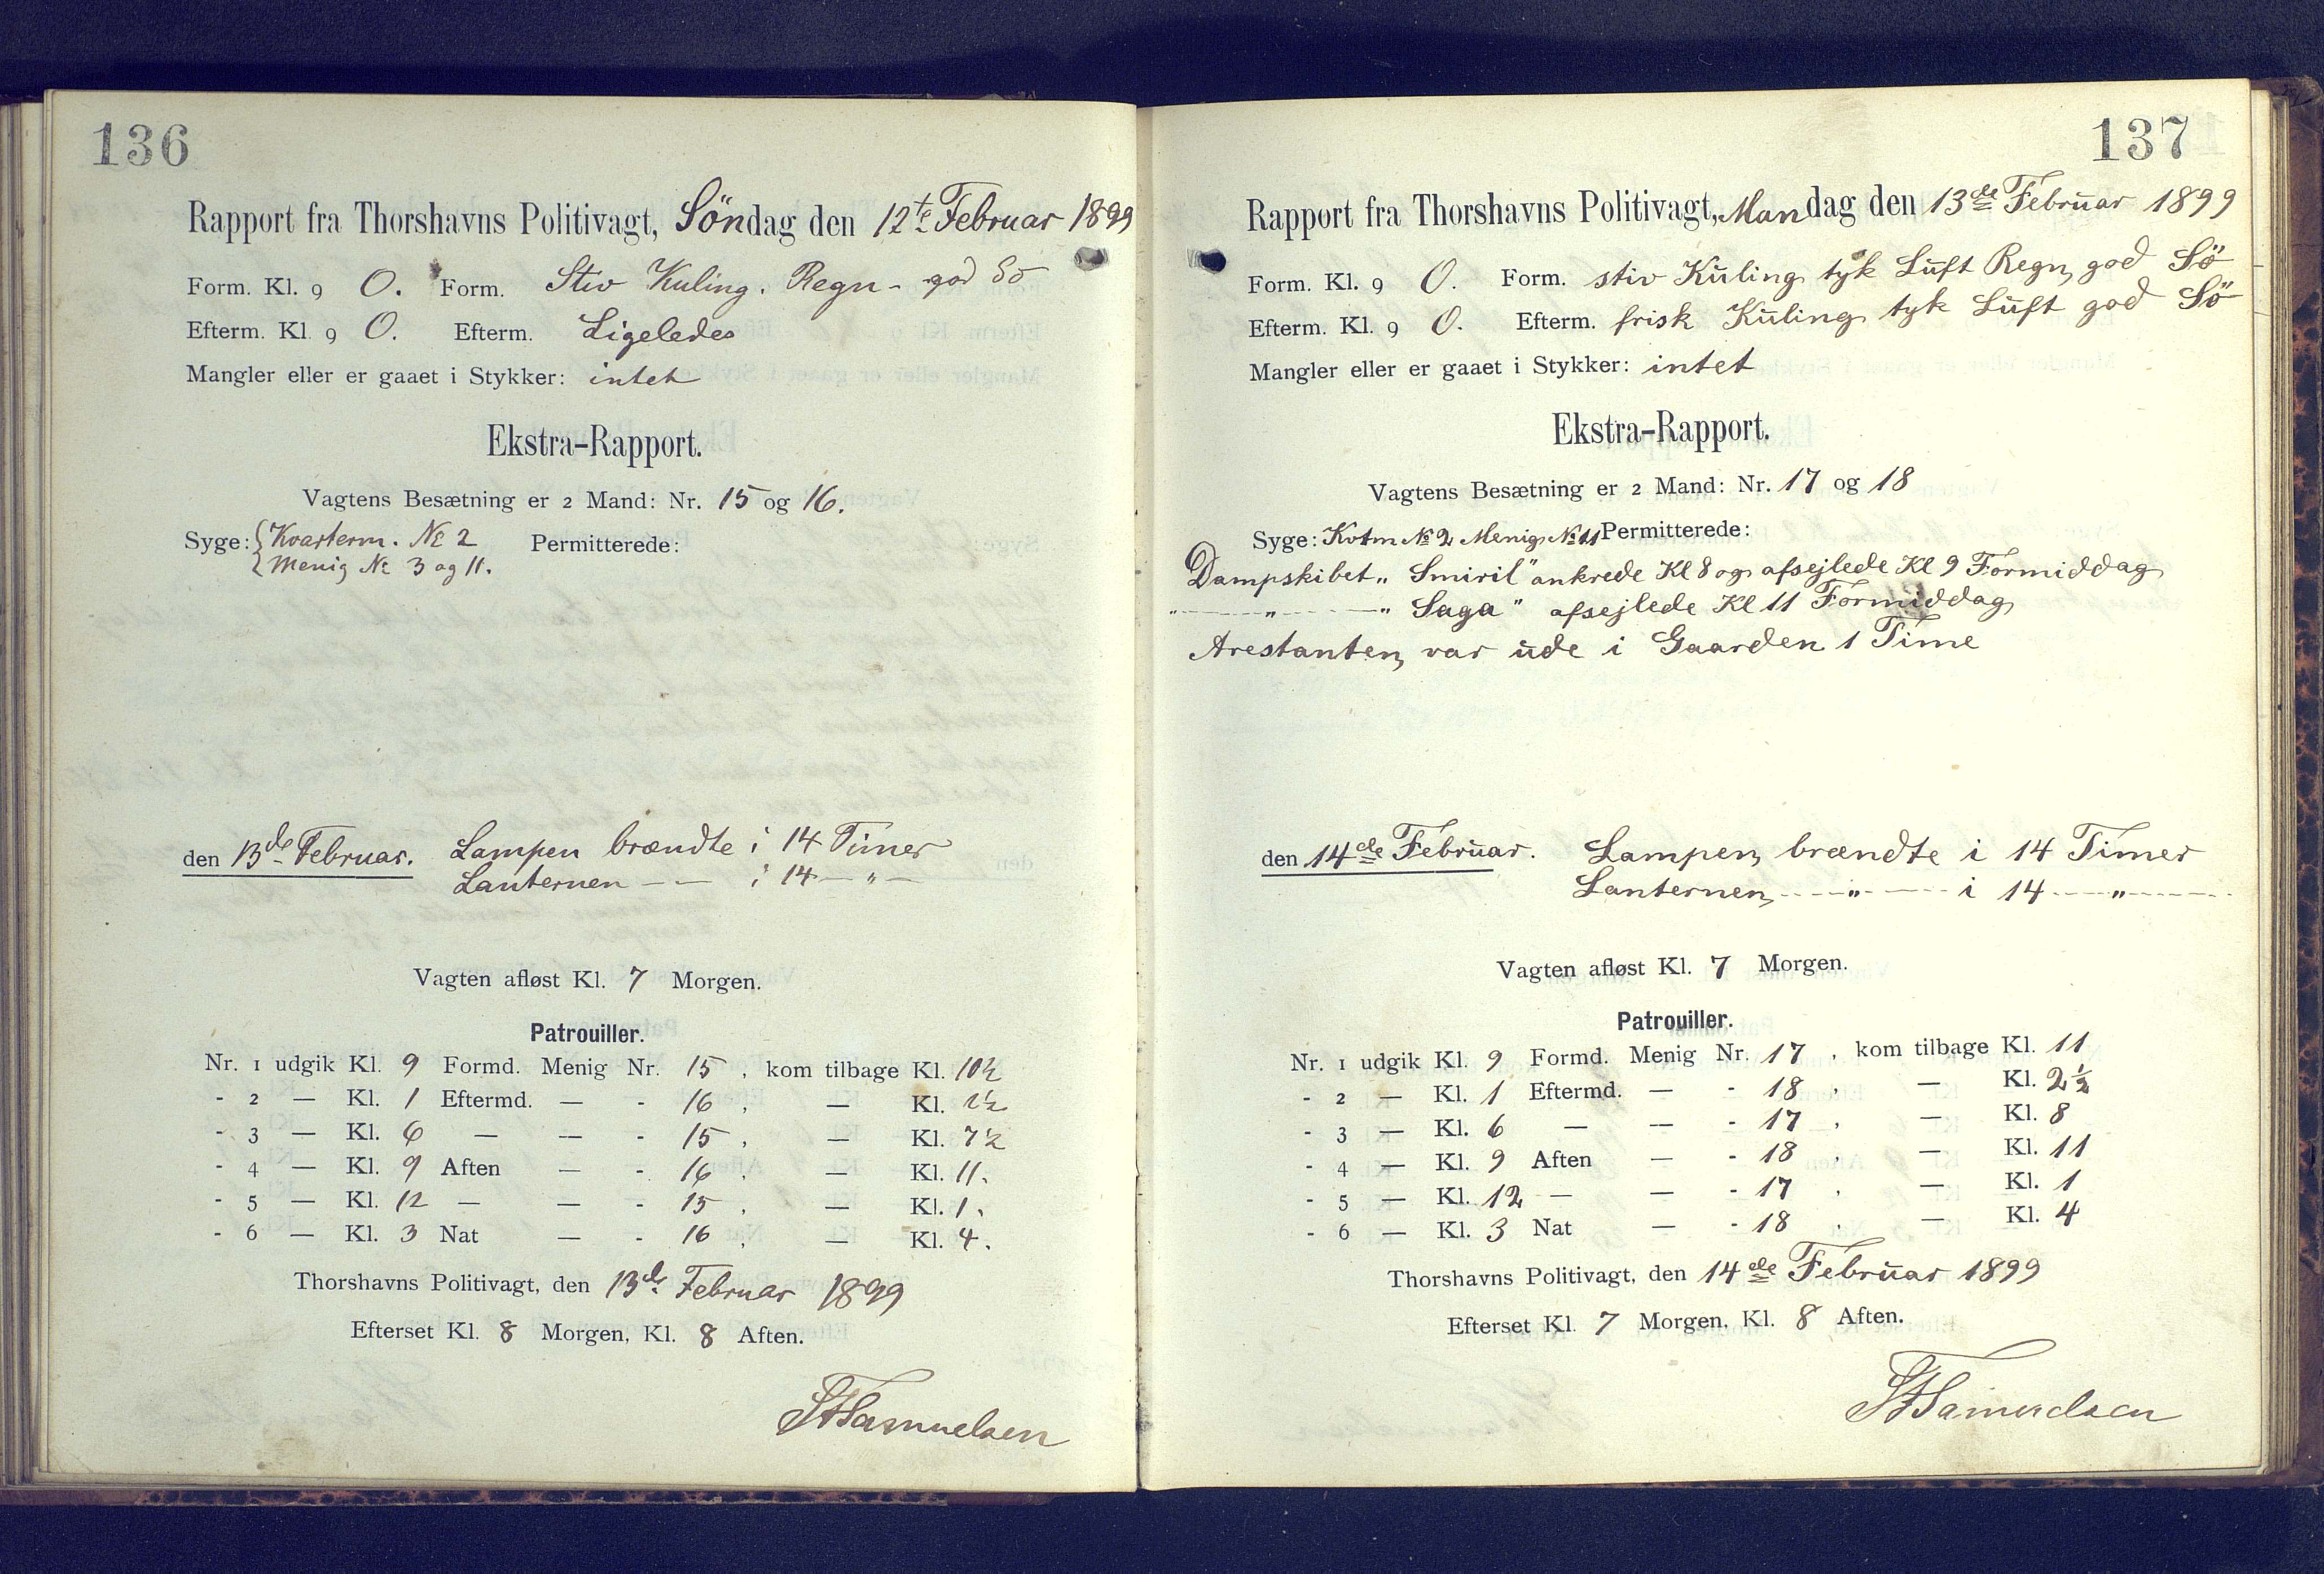 136
Rapport fra Thorshavns Politivagt, Söndag den 12te Februar 1899
Form. Kl. 9 O. Form. Stiv Kuling. Regn - god Sö
Efterm. Kl. 9 O. Efterm. Ligeledes
Mangler eller er gaaet i Stykker: intet
Ekstra-Rapport.
Vagtens Besætning er 2 Mand: Nr. 15 og 16.
Syge: Kvarterm. No 2 Permitterede:
Menig No 3 og 11.
den 13de Februar. Lampen brændte i 14 Timer
Lanternen — — i 14 — „ —
Vagten afløst Kl. 7 Morgen.
Patrouiller.
Nr. 1 udgik Kl. 9 Formd. Menig Nr. 15, kom tilbage Kl. 10½
- 2 — Kl. 1 Eftermd. — - 16, — Kl. 2½
- 3 — Kl. 6 — — - 15, — Kl. 7½
- 4 — Kl. 9 Aften — - 16, — Kl. 11.
- 5 — Kl. 12 — — - 15, — Kl. 1.
- 6 — Kl. 3 Nat — - 16, — Kl. 4.
Thorshavns Politivagt, den 13de Februar 1899
Efterset Kl. 8 Morgen, Kl. 8 Aften.
Samuelsen
137
Rapport fra Thorshavns Politivagt, Mandag den 13de Februar 1899
Form. Kl. 9 O. Form. stiv Kuling tyk Luft Regn, god Sö
Efterm. Kl. 9 O. Efterm. frisk Kuling tyk Luft god Sö
Mangler eller er gaaet i Stykker: intet
Ekstra-Rapport.
Vagtens Besætning er 2 Mand: Nr. 17 og 18
Syge: Kvtm No 2 Menig No 11 Permitterede:
Dampskibet „Smiril" ankrede Kl 8 og afsejlede Kl 9 Formiddag
„ — „ — „Saga" afsejlede Kl 11 Formiddag
Arestanten var ude i Gaarden 1 Time
den 14de Februar. Lampen brændte i 14 Timer
Lanternen — „ — i 14 — „ —
Vagten afløst Kl. 7 Morgen.
Patrouiller.
Nr. 1 udgik Kl. 9 Formd. Menig Nr. 17, kom tilbage Kl. 11
- 2 — Kl. 1 Eftermd. — - 18, — Kl. 2½
- 3 — Kl. 6 — — - 17, — Kl. 8
- 4 — Kl. 9 Aften — - 18, — Kl. 11
- 5 — Kl. 12 — — - 17, — Kl. 1
- 6 — Kl. 3 Nat — - 18, — Kl. 4
Thorshavns Politivagt, den 14de Februar 1899
Efterset Kl. 7 Morgen, Kl. 8 Aften.
Samuelsen